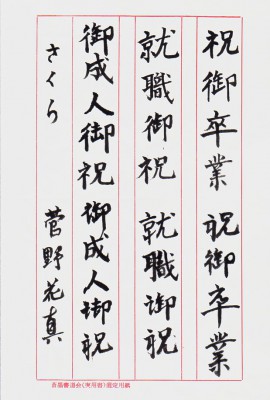 祝御卒業 祝御卒業
就職御祝 就職御祝
御成人御祝 御成人御祝
さくら 菅野花真